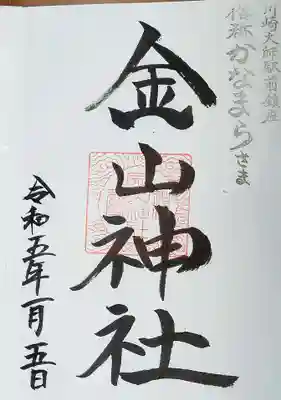 川崎大師駅前鎮座
俗称かなまらさま
金山神社
令和五年一月五日